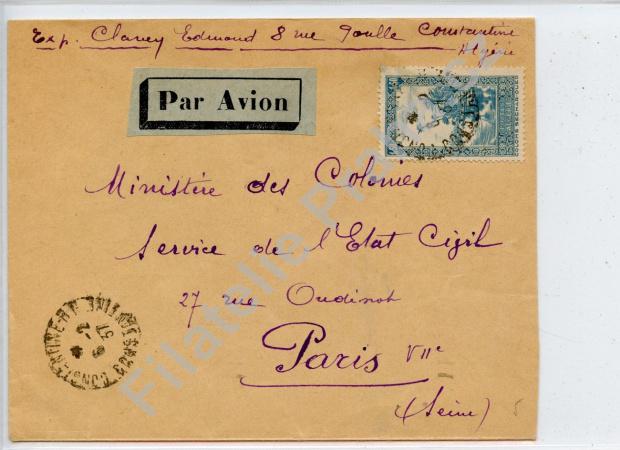 Exp. Clavey Edmond 8 rue Constantine
Algérie
Par Avion
Ministère des Colonies
Service de l'Etat Cigil
27 rue Oudinot
Paris VIIe
(Seine)
CONSTANTINE
37
5
Filatelia